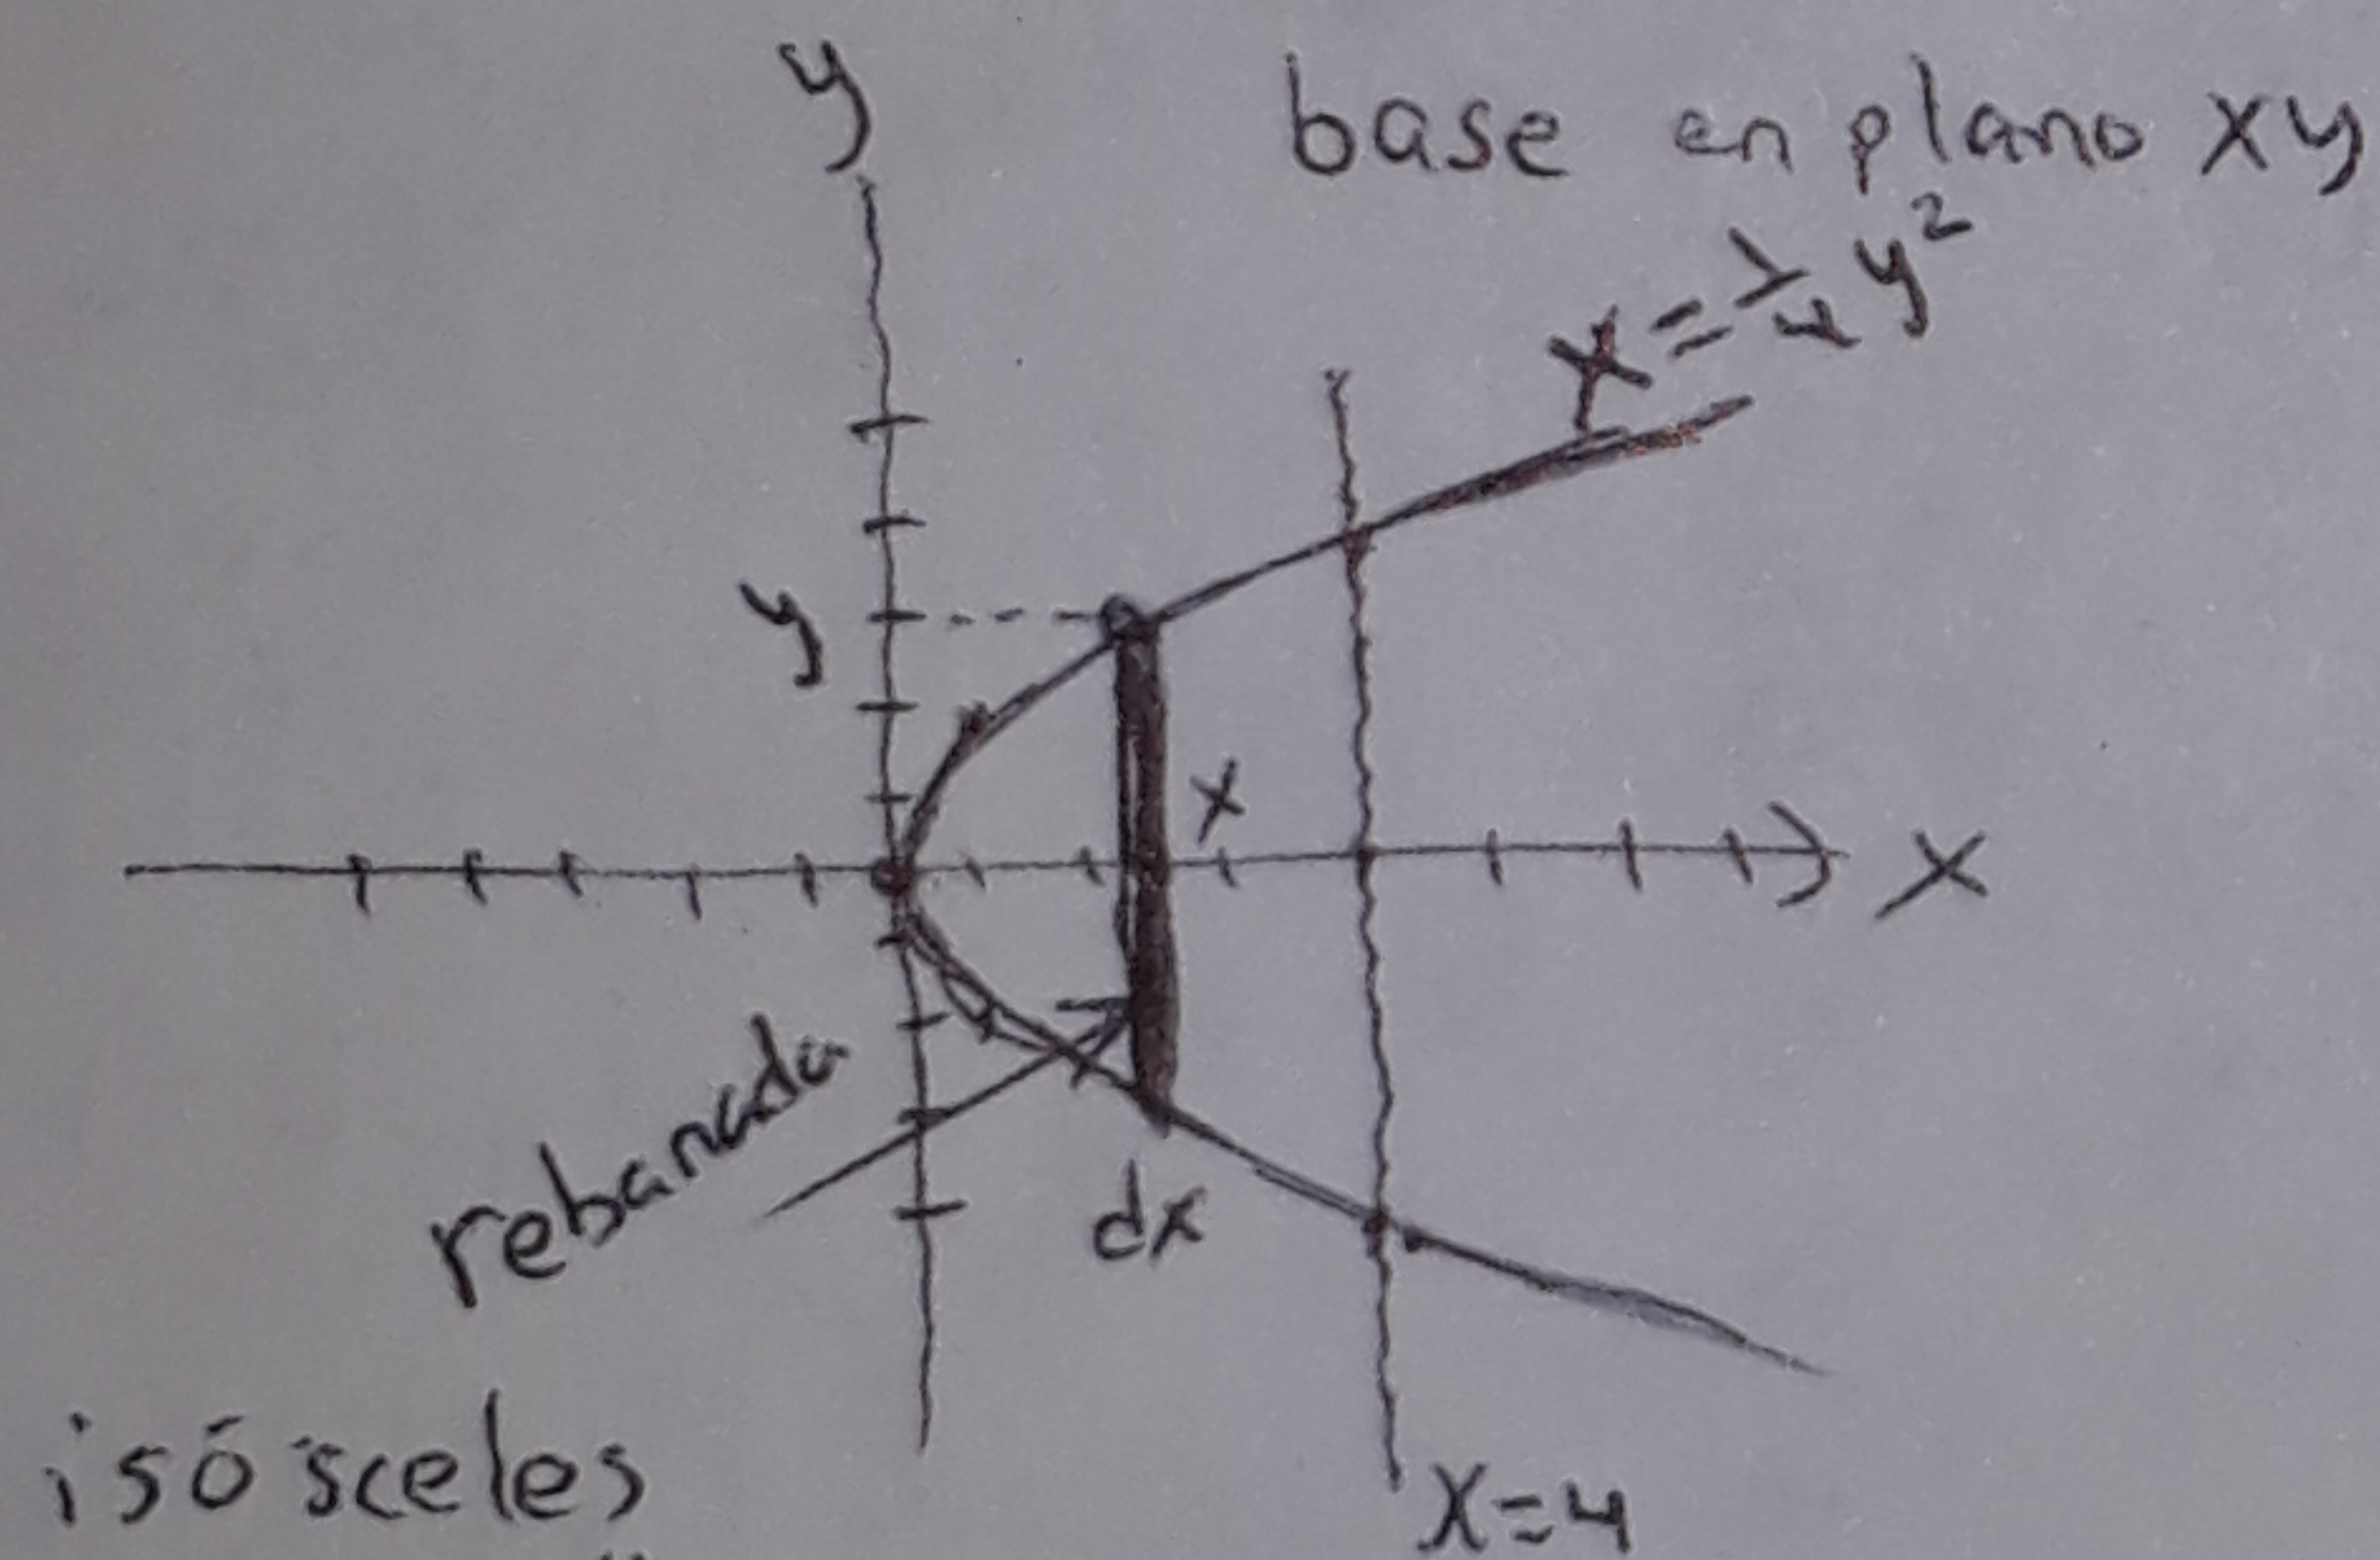 y
base en plano xy
x = 1/4 y²
y
x
x
rebanada
dx
isósceles
x=4